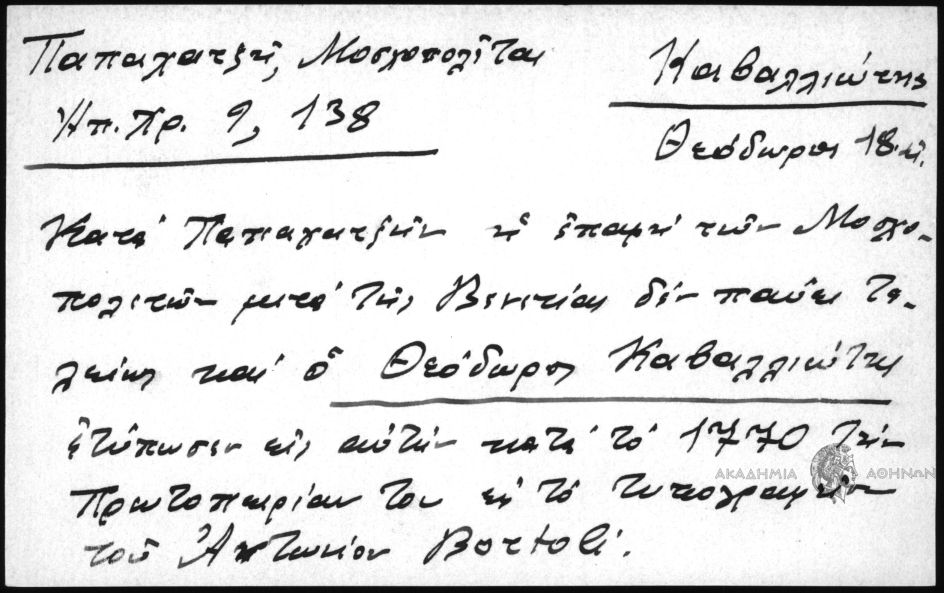 Παπαχατζῆ, Μοσχοπολῖται
Ἠπ. Χρ. 9, 138
Καβαλλιώτης
Θεόδωρος 18 αἰ.
Κατὰ Παπαχατζῆν ἡ ἐπαφὴ τῶν Μοσχο-
πολιτῶν μετὰ τῆς Βενετίας δὲν παύει τε-
λείως καὶ ὁ Θεόδωρος Καβαλλιώτης
ἐτύπωσεν εἰς αὐτὴν κατὰ τὸ 1770 τὴν
Πρωτοπειρίαν του εἰς τὸ τυπογραφεῖον
τοῦ Ἀντωνίου Bortoli.
ΑΚΑΔΗΜΙΑ ΑΘΗΝΩΝ